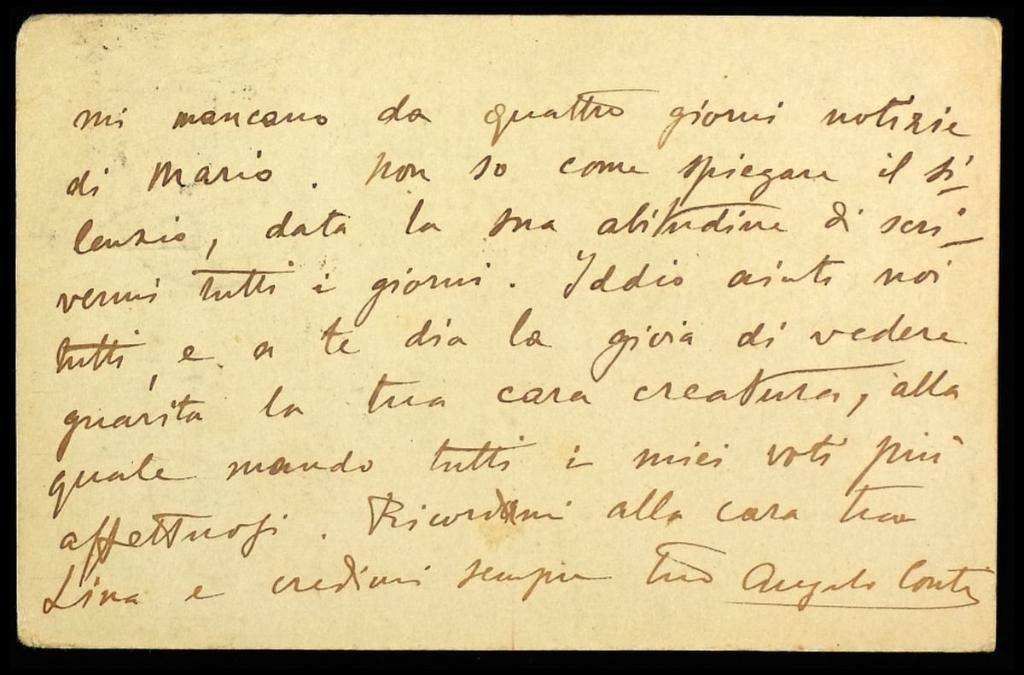 mi mancano da quattro giorni notizie
di Mario. Non so come spiegare il si-
lenzio, data la sua abitudine di scri-
vermi tutti i giorni. Iddio aiuti noi
tutti, e a te dia la gioia di vedere
guarita la tua cara creatura, alla
quale mando tutti i miei voti più
affettuosi. Ricordami alla cara tua
Lina e credimi sempre tuo Angelo Conti